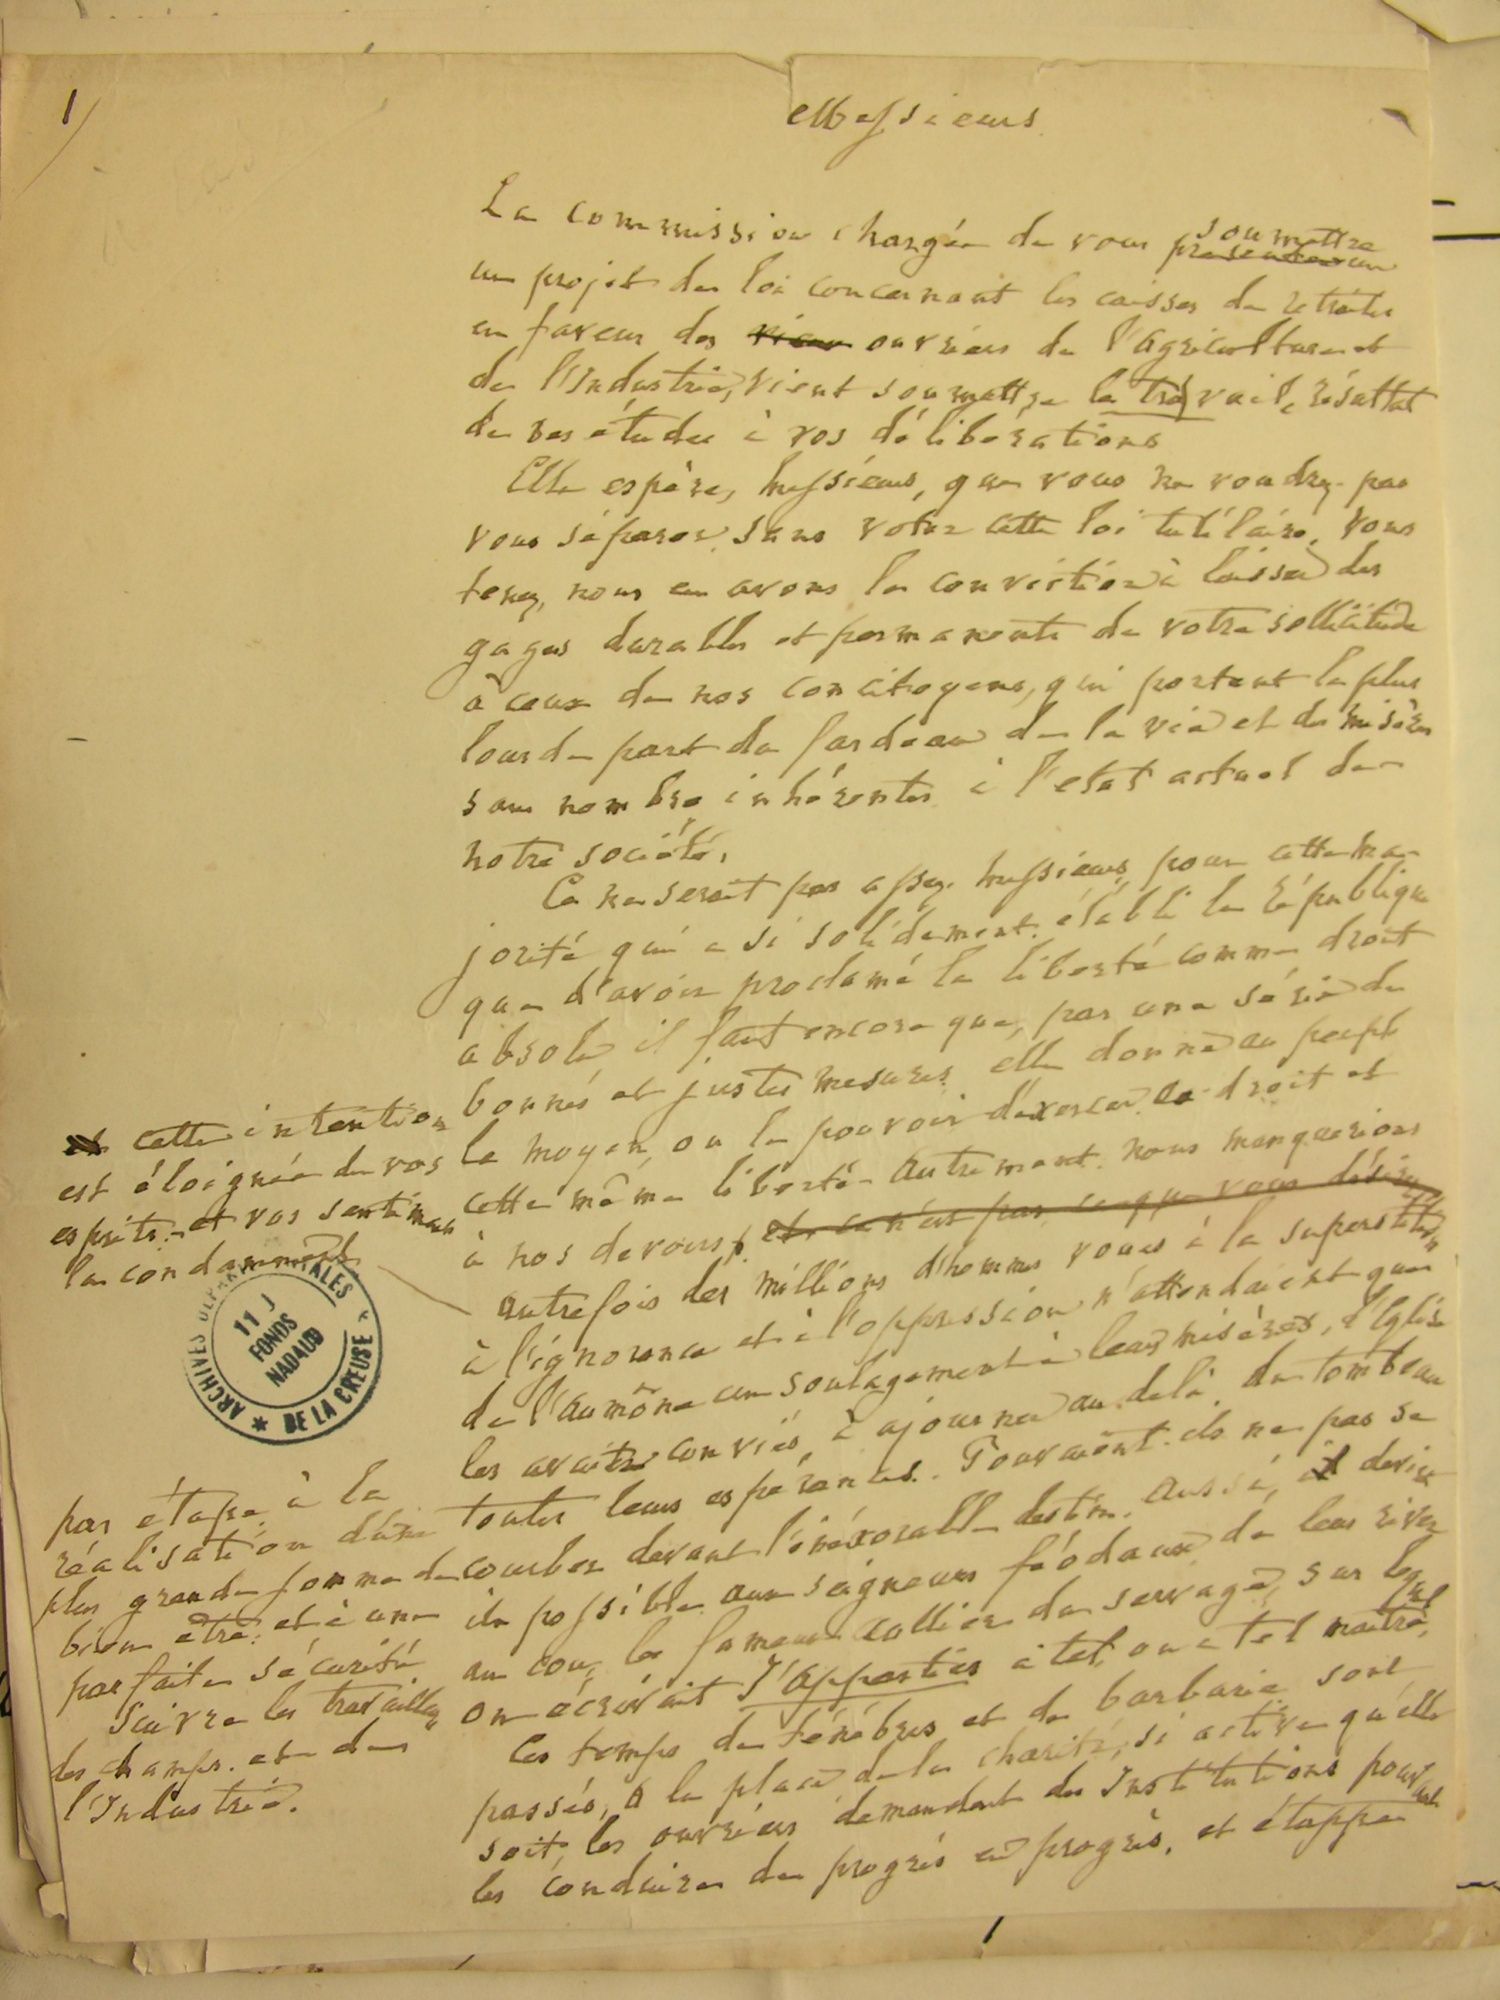 1
Messieurs
La commission chargée de vous soumettre
presenter un
un projet de loi concernant les caisses de retraites
en faveur des vieux ouvriers de l'agriculture et
de l'Industrie, vient soumettre le travail, résultat
de ses études à vos délibérations
Elle espère, messieurs, que vous ne voudrez pas
vous séparer sans voter cette loi tutélaire. Vous
tenez, nous en avons la conviction à laisser des
gages durables et permanents de votre sollicitude
à ceux de nos concitoyens, qui portent la plus
lourde part du fardeau de la vie et des misères
sans nombre inhérentes à l'etat actuel de
notre société.
Ce ne serait pas assez messieurs, pour cette ma-
jorité qui a si solidement établi la République
que d'avoir proclamé la liberté comme droit
absolu il faut encore que, par une série de
bonnes et justes mesures elle donne au peuple
le moyen, ou le pouvoir d'exercer ce droit et
cette même liberté autrement nous manquerions
à nos devoirs, et ce n'est pas ce que vous désirez
cette intention
est éloignée de vos
esprits et vos sentiments
la condamnent
autrefois des millions d'hommes voués à la superstition
à l'ignorance et à l'oppression n'attendaient que
de l'aumône un soulagement à leurs misères, l'Eglise
les avait conviés, à ajourner au delà du tombeau
toutes leurs espérances. Pouvaient-ils ne pas se
courber devant l'inéxorable destin. Aussi, il devint
possible aux seigneurs féodaux de leur river
au cou, le fameux collier du servage, sur lequel
on écrivait J'appartiens à tel, ou à tel maître,
Ces temps de ténébres et de barbarie sont
passés, à la place de la charité, si active qu'elle
soit, les ouvriers demandent des Institutions pouvant
les conduire de progrès en progrès, et étappe
par étape, à la
réalisation d'une
plus grande somme de
bien être, et à une
parfaite sécurité
Suivre les travailleurs
des champs et de
l'Industrie.
ARCHIVES DEPARTEMENTALES
DE LA CREUSE
11 J
FONDS
NADAUD